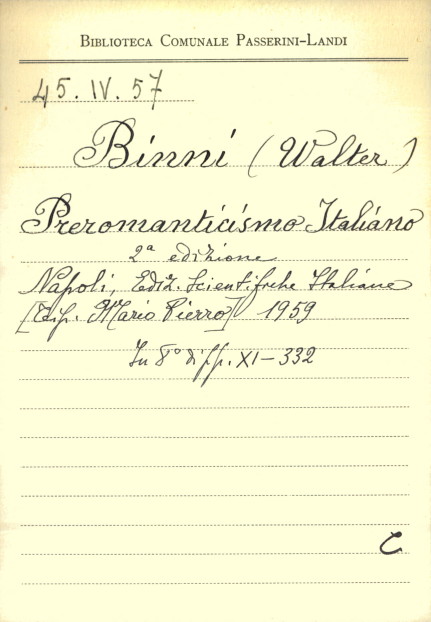 BIBLIOTECA COMUNALE PASSERINI-LANDI
45. IV. 57
Binni (Walter)
Preromanticismo Italiano
2ª edizione
Napoli, Ediz. Scientifiche Italiane
[Tip. Mario Pierro] 1959
In 8° di pp. XI-332
C